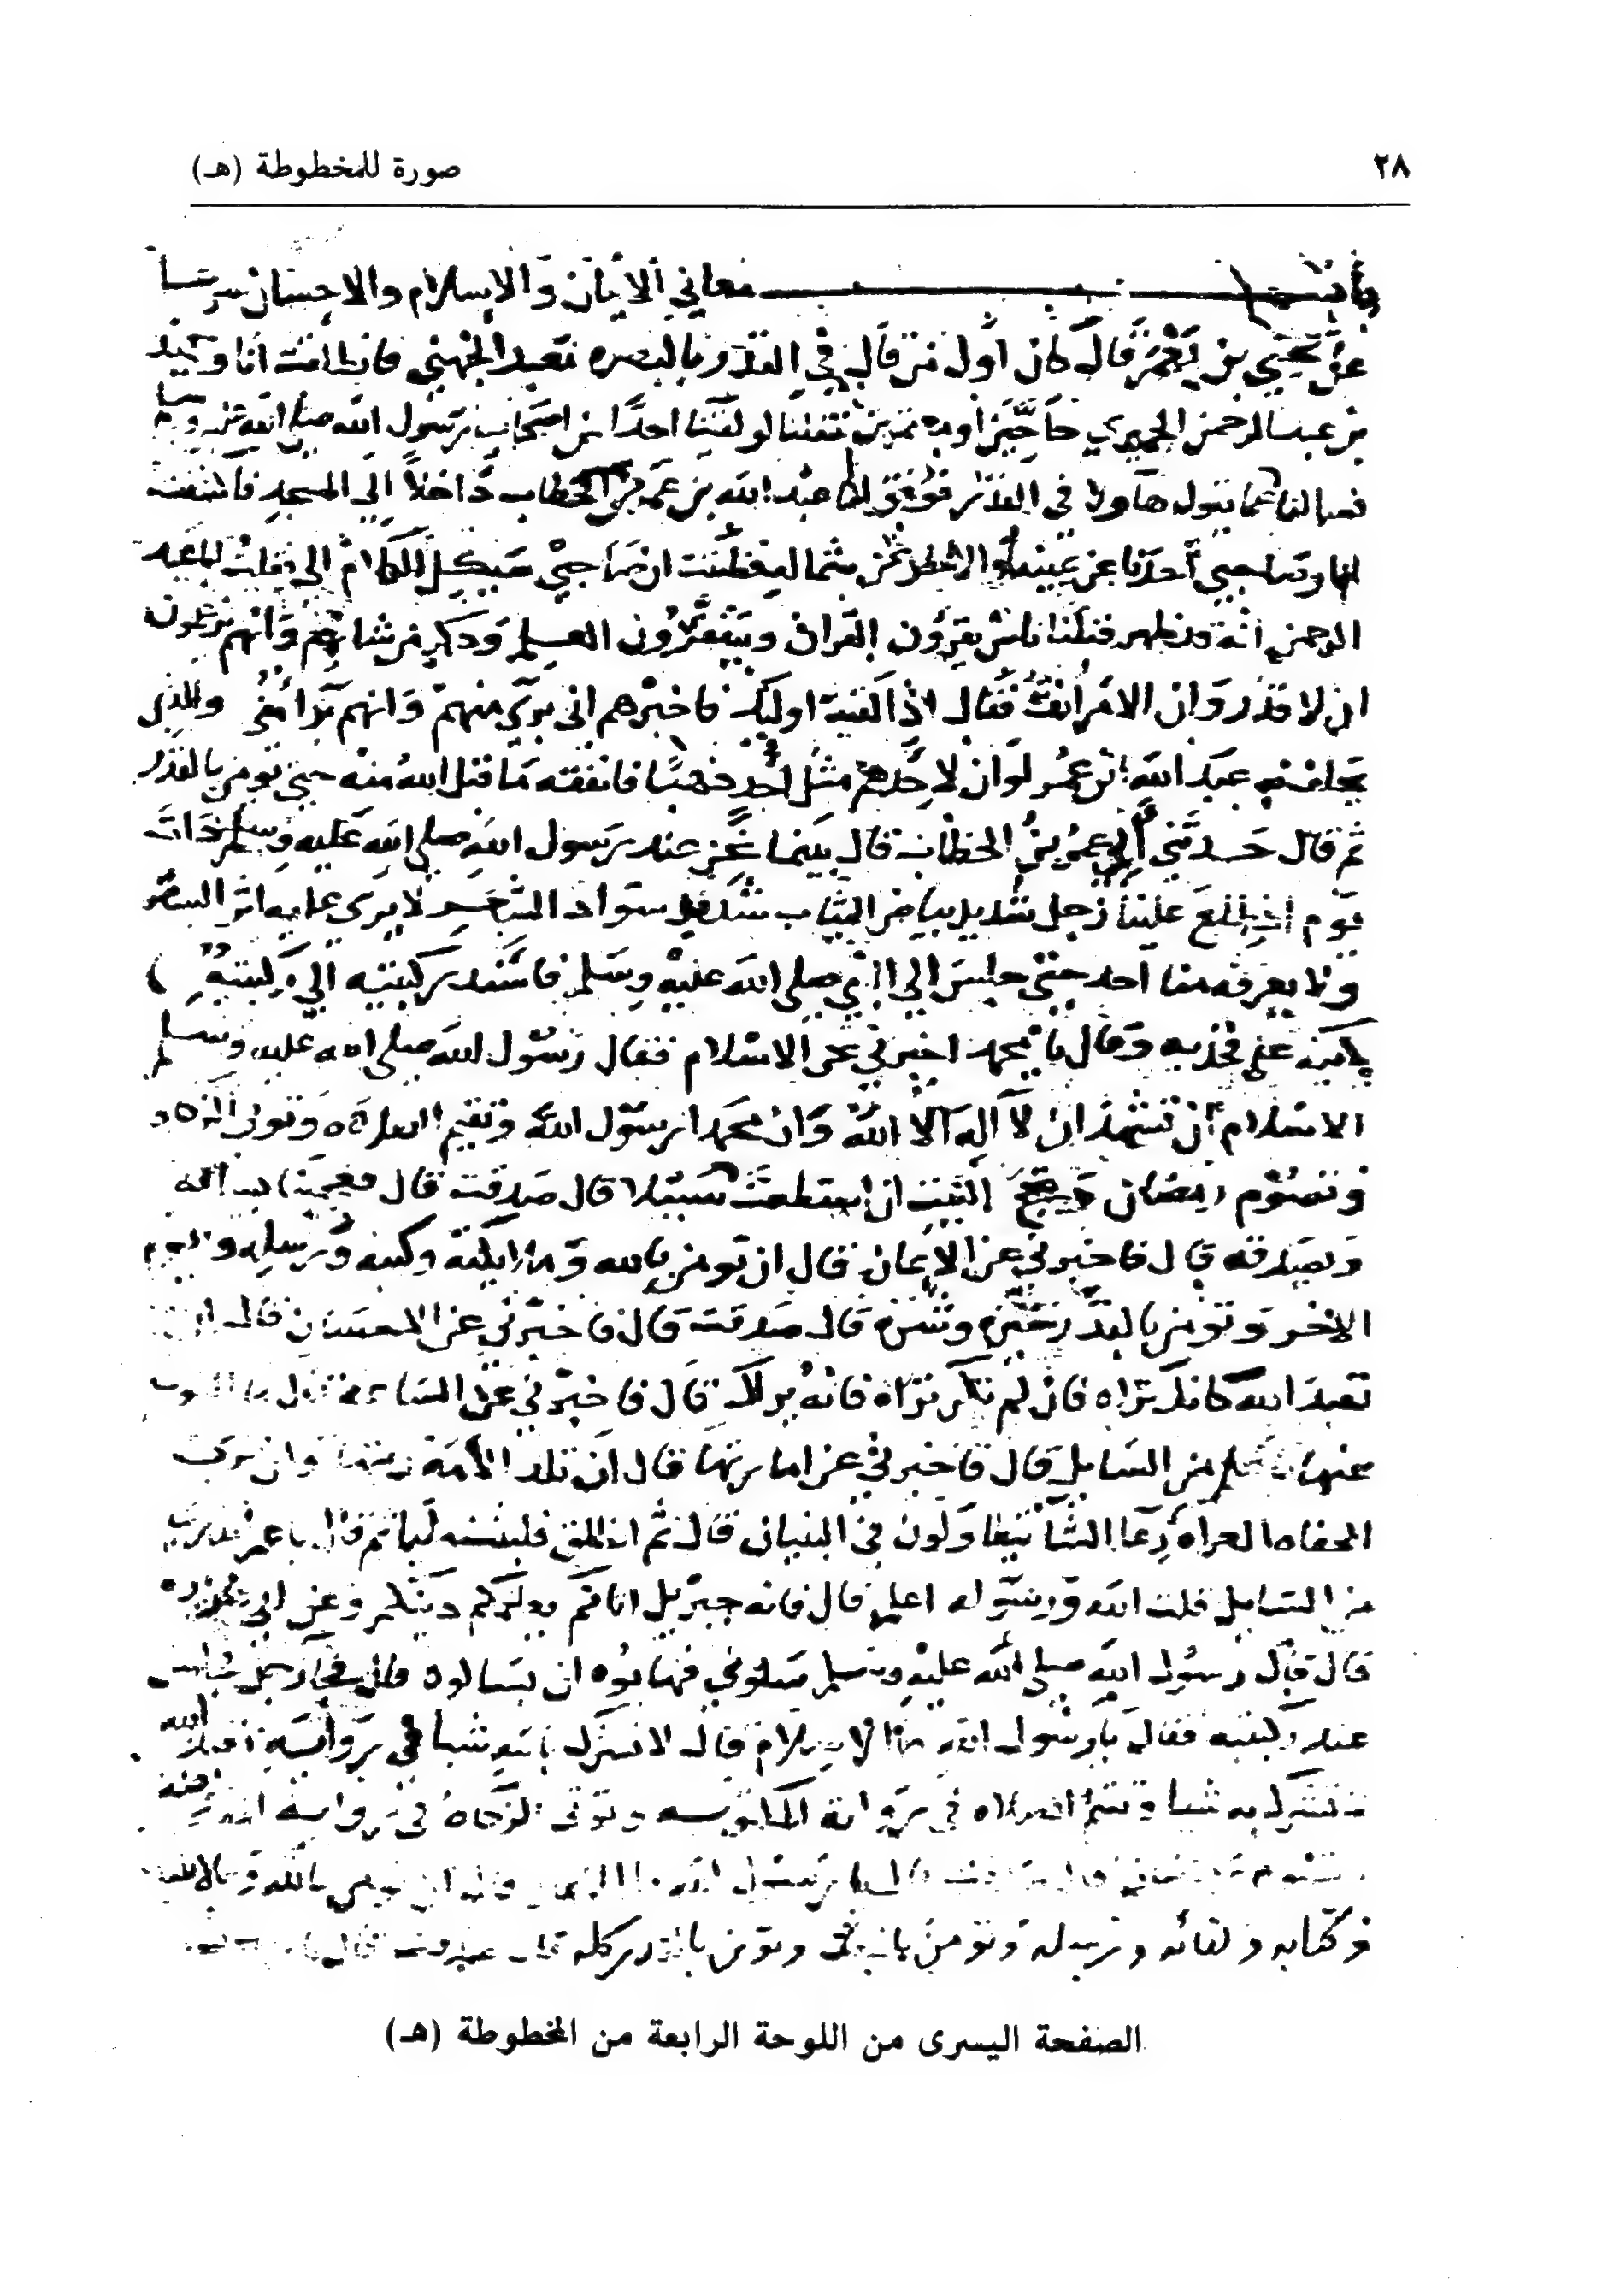 ٢٨
صورة للمخطوطة (هـ)
باب معاني الايمان والاسلام والاحسان شرعا
عن يحيي بن يعمر قال كان اول من قال في القدر بالبصره معبد الجهني فانطلقت انا وحميد
بن عبد الرحمن الحميري حاجين او معتمرين فقلنا لو لقينا احدًا من اصحاب رسول الله صلى الله عليه وسلم
فسالناه عما يقول هاولا في القدر فوفق لنا عبد الله بن عمر بن الخطاب داخلاً الي المسجد فاكتنفته
انا وصاحبي احدنا عن يمينه والاخر عن شماله فظننت ان صاحبي سيكل الكلام الى فقلت ابا عبد
الرحمن انه قد ظهر قبلنا ناس يقرون القران ويتقفرون العلم وذكر من شانهم وانهم يزعمون
ان لا قدر وان الامر انف فقال اذا لقيت اوليك فاخبرهم اني بري منهم وانهم برا مني والذي
يحلف به عبد الله بن عمر لو ان لاحدهم مثل احد ذهبًا فانفقه ما قبل الله منه حتي تومن بالقدر
ثم قال حدثني ابي عمر بن الخطاب قال بينما نحن عند رسول الله صلى الله عليه وسلم ذات
يوم اذ طلع علينا رجل شديد بياض الثياب شديد سواد الشعر لا يرى عليه اثر السفر
ولا يعرفه منا احد حتى جلس الي النبي صلى الله عليه وسلم فاسند ركبتيه الي ركبتيه
كفيه على فخذيه وقال يا محمد اخبرني عن الاسلام فقال رسول الله صلى الله عليه وسلم
الاسلام ان تشهد ان لا اله الا الله وان محمدا رسول الله وتقيم الصلاة وتوتي الزكاه
وتصوم رمضان وتحج البيت ان استطعت سبيلا قال صدقت قال فعجبنا له يساله
ويصدقه قال فاخبرني عن الايمان قال ان تومن بالله وملايكته وكتبه ورسله واليوم
الاخر وتومن بالقدر خيره وشره قال صدقت قال فاخبرني عن الاحسان قال ان
تعبد الله كانك تراه فان لم تكن تراه فانه يراك قال فاخبرني عن الساعة قال ما المسوول
عنها باعلم من السايل قال فاخبرني عن اماراتها قال ان تلد الامة ربتها وان ترى
الحفاه العراه رعا الشا يتطاولون في البنيان قال ثم انطلق فلبثت مليا ثم قال يا عمر اتدري
من السايل قلت الله ورسوله اعلم قال فانه جبريل اتاكم يعلمكم دينكم وعن ابي هريره
قال قال رسول الله صلى الله عليه وسلم سلوني فهابوه ان يسالوه قال فجا رجل فجلس
عند ركبتيه فقال يا رسول الله ما الاسلام قال لا تشرك بالله شيا في رواية تعبد الله
لا تشرك به شيا وتقيم الصلاه في رواية المكتوبه وتوتى الزكاة في رواية
وتصوم رمضان قال صدقت قال يا رسول الله ما الايمان قال ان تومن بالله وملايكته
وكتابه ولقائه ورسله وتومن بالبعث وتومن بالقدر كله قال صدقت قال يا رسول
الصفحة اليسرى من اللوحة الرابعة من المخطوطة (هـ)